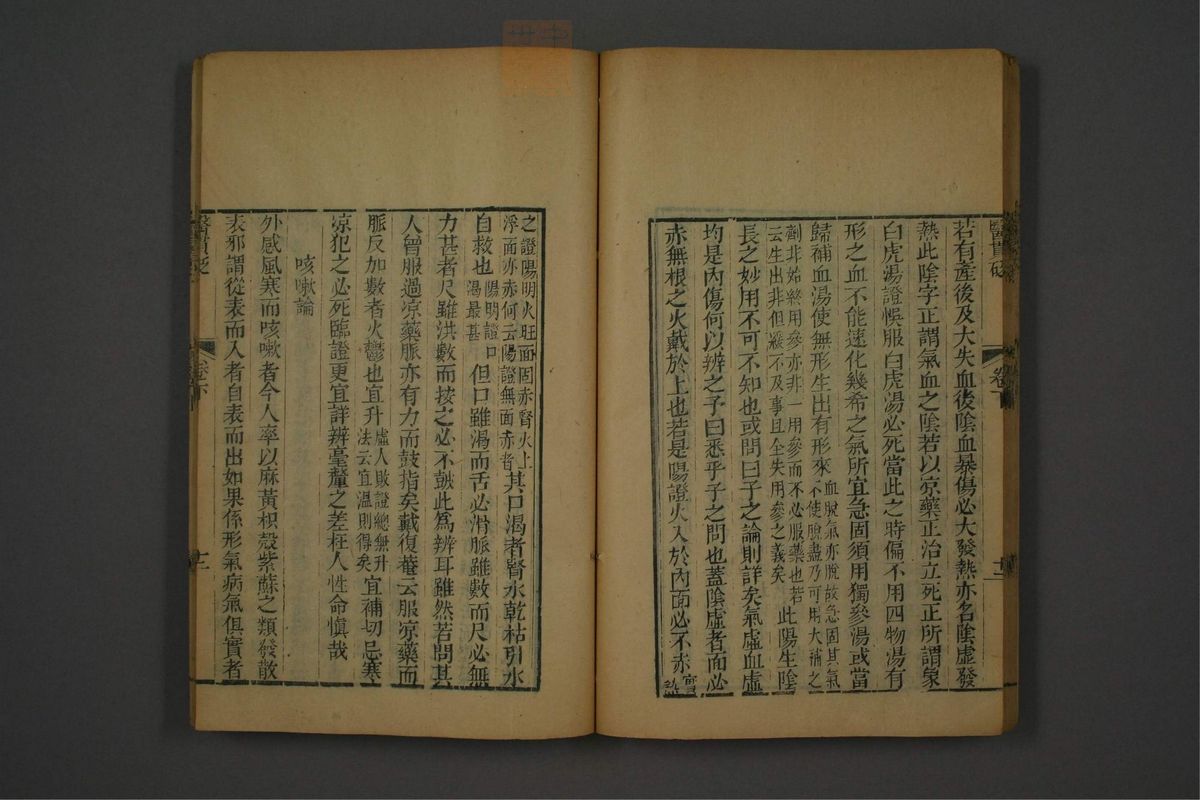 若有產後及大失血後陰血暴傷必大發熱亦名陰虛發
熱此陰字正謂氣血之陰若以凉藥正治立死正所謂象
白虎湯證悞服白虎湯必死當此之時偏不用四物湯有
形之血不能速化幾希之氣所宜急固須用獨參湯或當
歸補血湯使無形生出有形來
血脫氣亦脫故急固其氣
不使脫盡乃可用大補之
劑非始終用參亦非一用參而不必服藥也若
云生出非但緩不及事且全失用參之義矣
此陽生陰
長之妙用不可不知也或問曰子之論則詳矣氣虛血虛
均是內傷何以辨之予曰悉乎子之問也蓋陰虛者面必
赤無根之火戴於上也若是陽證火入於內面必不赤
之證陽明火旺面固赤腎火上
浮面亦赤何云陽證無面赤者
其口渴者腎水乾枯引水
自救也
陽明證口
渴最甚
但口雖渴而舌必滑脈雖數而尺必無
力甚者尺雖洪數而按之必不鼓此爲辨耳雖然若問其
人曾服過凉藥脈亦有力而鼓指矣戴復菴云服凉藥而
脈反加數者火鬱也宜升
虛人敗證總無升
法云宜溫則得矣
宜補切忌寒
凉犯之必死臨證更宜詳辨毫釐之差枉人性命愼哉
咳嗽論
外感風寒而咳嗽者今人率以麻黃枳殼紫蘇之類發散
表邪謂從表而入者自表而出如果係形氣病氣俱實者
醫貫砭
卷下